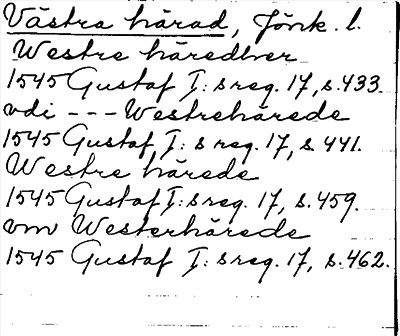 Västra härad, Jönk. l.
Westre häredher
1545 Gustaf I: s reg. 17, s. 433.
vdi --- Westrehärede
1545 Gustaf I: s reg. 17, s. 441.
Westre härede
1545 Gustaf I: s reg. 17, s. 459.
vm Westerhärede
1545 Gustaf I: s reg. 17, s. 462.